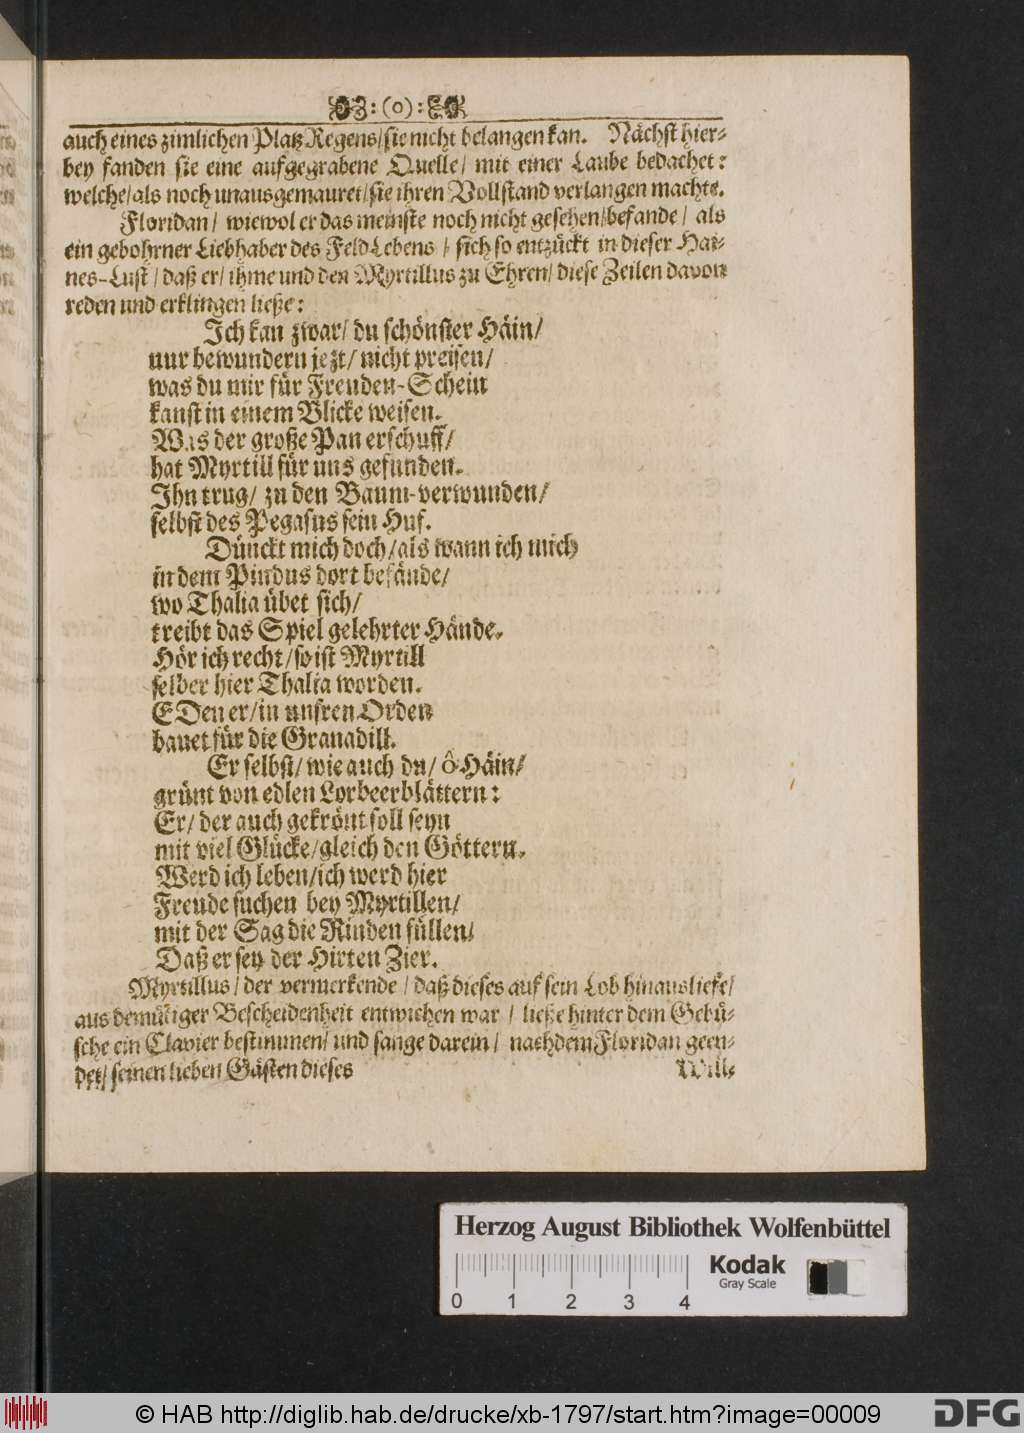 :(o):
auch eines zimlichen Platz Regens/ sie nicht belangen kan. Nächst hier-
bey fanden sie eine aufgegrabene Quelle/ mit einer Laube bedachet:
welche/ als noch unausgemauret/ sie ihren Vollstand verlangen machte.
Floridan/ wiewol er das meinste noch nicht gesehen/ befande/ als
ein gebohrner Liebhaber des FeldLebens/ sich so entzückt in dieser Hai-
nes-Lust/ daß er/ ihme und den Myrtillus zu Ehren/ diese Zeilen davon
reden und erklingen ließe:
Ich kan zwar/ du schönster Häin/
nur bewundern jezt/ nicht preisen/
was du mir für Freuden-Schein
kanst in einem Blicke weisen.
Was der große Pan erschuff/
hat Myrtill für uns gefunden.
Ihn trug/ zu den Baum-verwunden/
selbst des Pegasus sein Huf.
Dünckt mich doch/ als wann ich mich
in dem Pindus dort befände/
wo Thalia übet sich/
treibt das Spiel gelehrter Hände.
Hör ich recht/ so ist Myrtill
selber hier Thalia worden.
EDen er/ in unsren Orden
bauet für die Granadill.
Er selbst/ wie auch du/ ô Häin/
grünt von edlen Lorbeerblättern:
Er/ der auch gekrönt soll seyn
mit viel Glücke/ gleich den Göttern.
Werd ich leben/ ich werd hier
Freude suchen bey Myrtillen/
mit der Sag die Rinden füllen/
Daß er sey der Hirten Zier.
Myrtillus/ der vermerkende/ daß dieses auf sein Lob hinausliefe/
aus demütiger Bescheidenheit entwichen war/ ließe hinter dem Gebü-
sche ein Clavier bestimmen/ und sange darein/ nachdem Floridan geen-
det/ seinen lieben Gästen dieses
Will-
Herzog August Bibliothek Wolfenbüttel
Kodak
Gray Scale
0 1 2 3 4
© HAB http://diglib.hab.de/drucke/xb-1797/start.htm?image=00009
DFG